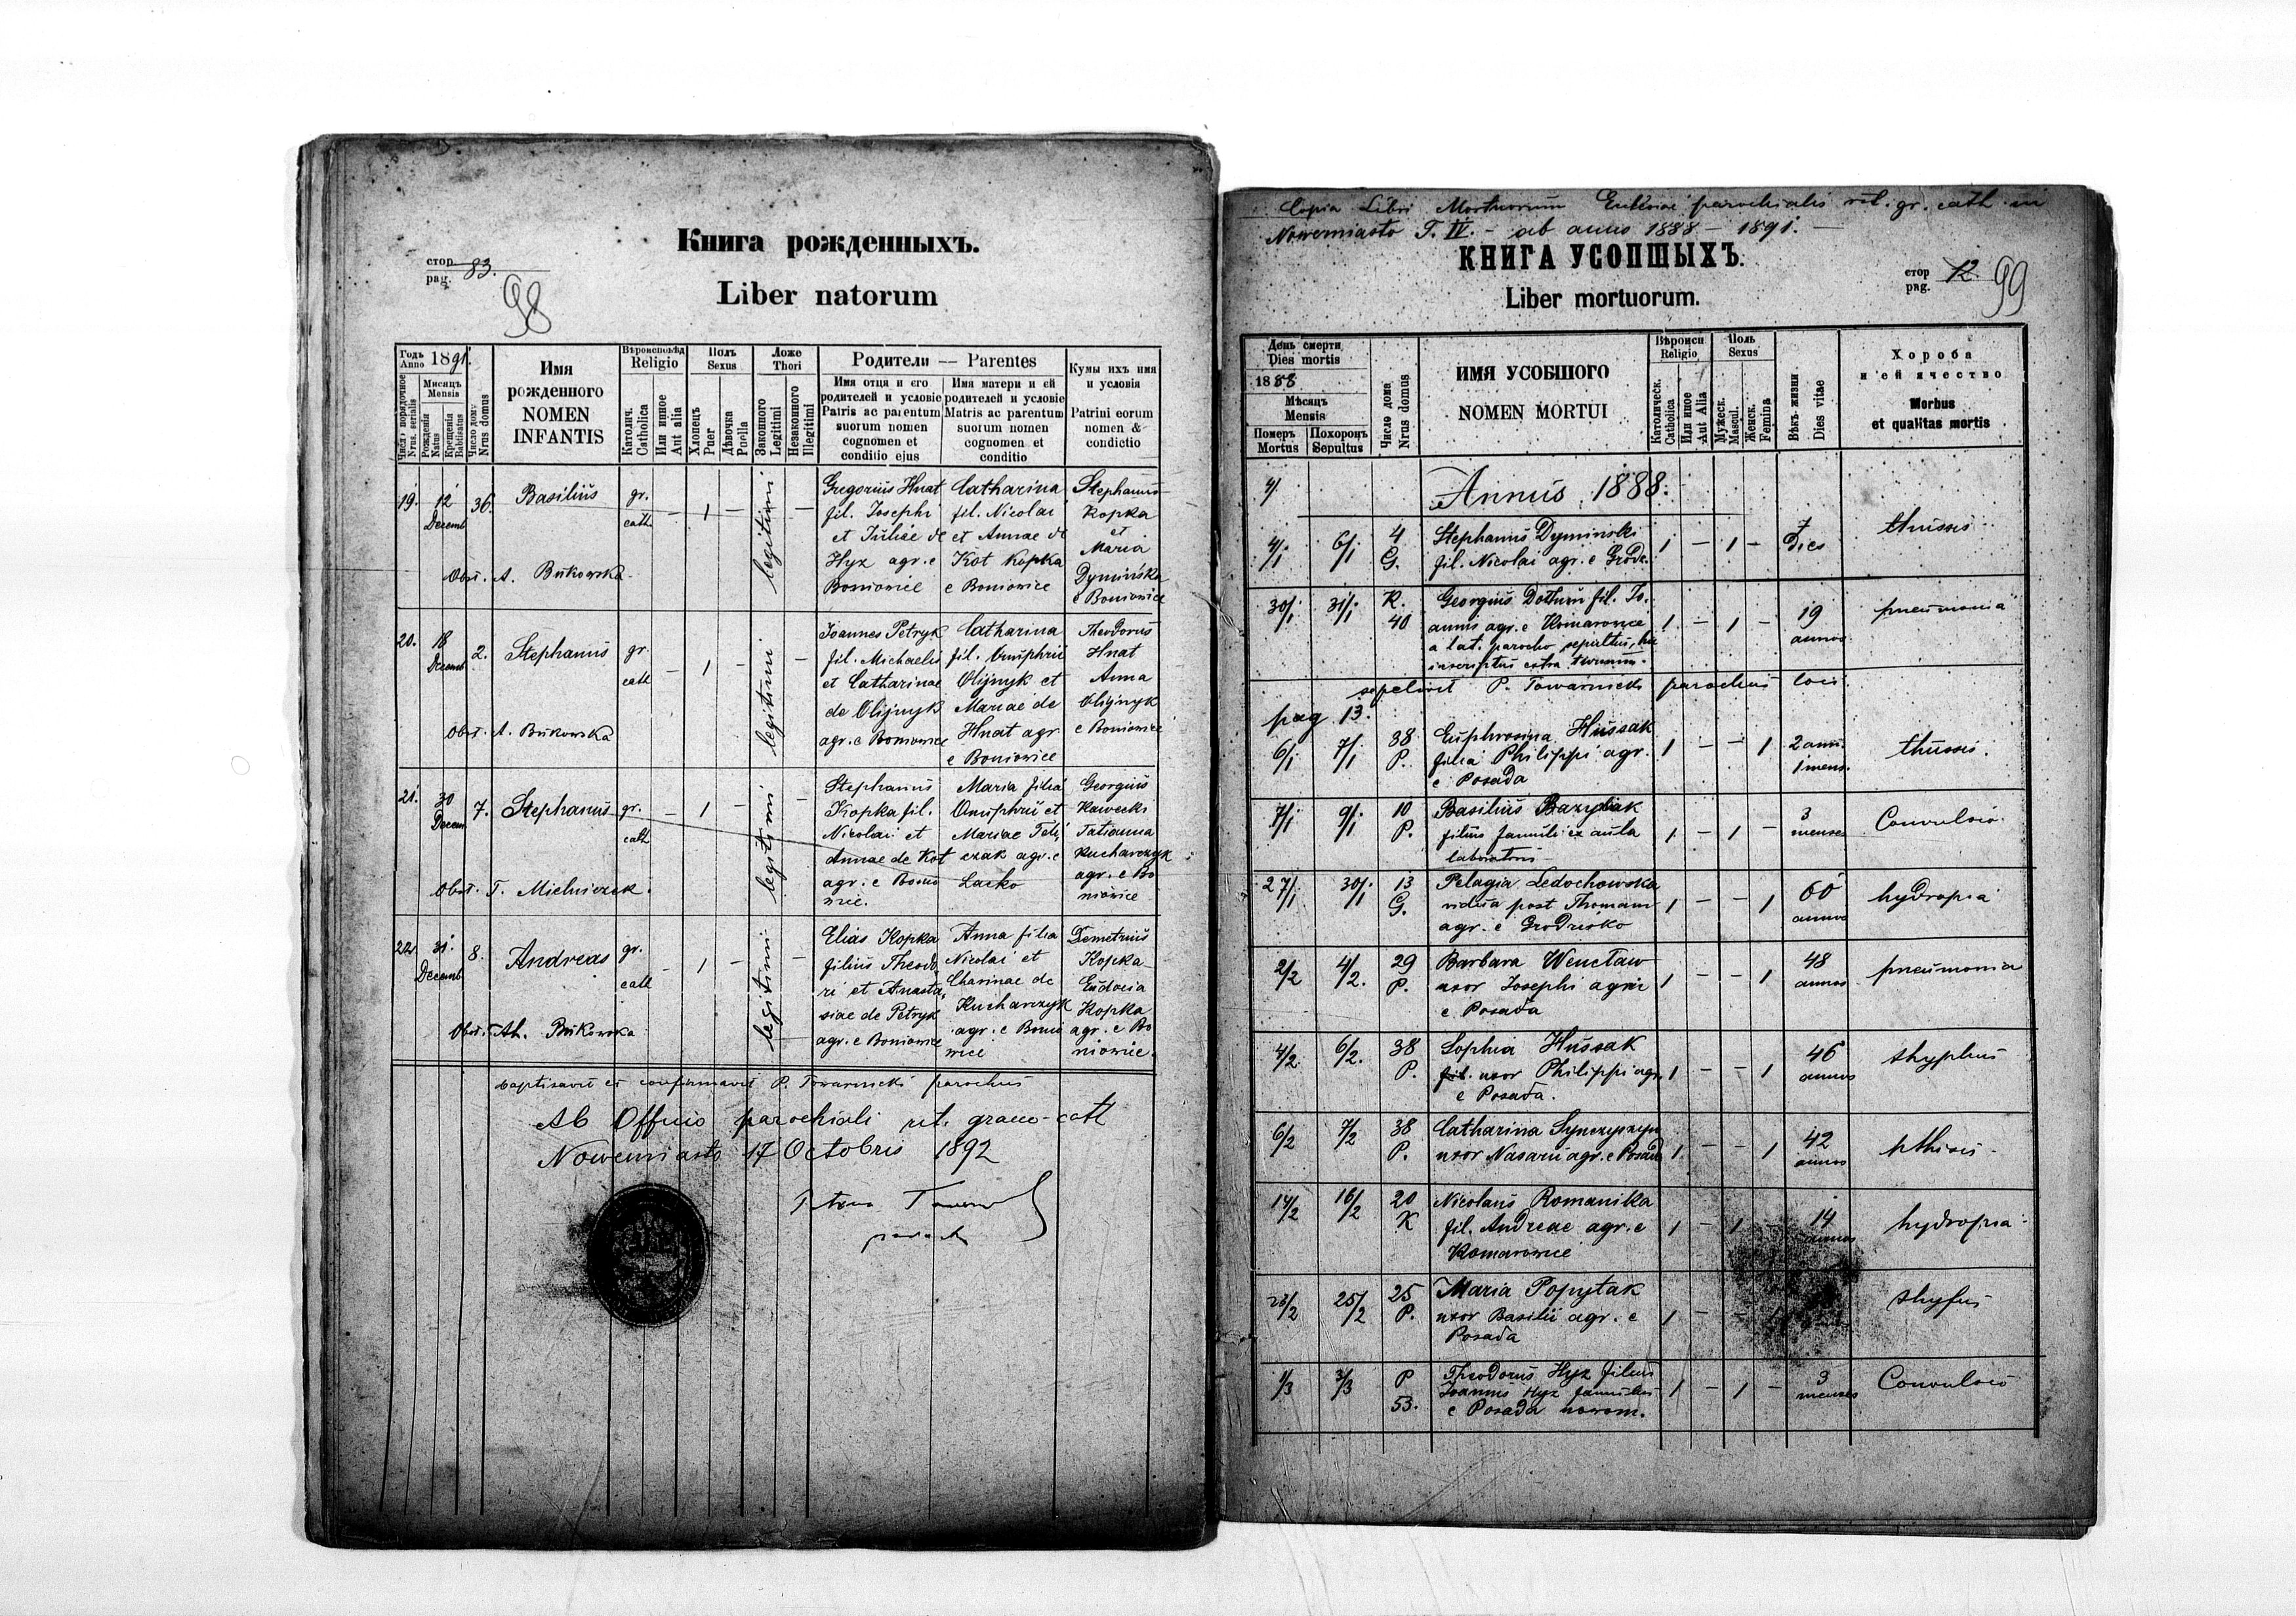 Книга рожденныхъ.
стор.
pag. 83.
98
Liber natorum
Годъ Anno 1891.
Число порядочное
Nrus. serialis
Мѣсяцъ
Mensis
Рожденія
Natus
Крещенія
Batisatus
Число дому
Nrus domus
Имя
рожденного
NOMEN
INFANTIS
Вѣроисповѣд
Religio
Католич.
Catholica
Или инное
Aut alia
Полъ
Sexus
Хлопецъ
Puer
Дѣвочка
Puella
Ложе
Thori
Законного
Legitimi
Незаконного
Illegitimi
Родители — Parentes
Имя отца и его
родителей и условіе
Patris ac parentum
suorum nomen
cognomen et
conditio ejus
Имя матери и ей
родителей и условіе
Matris ac parentum
suorum nomen
cognomen et
conditio
Кумы ихъ имя
и условія
Patrini eorum
nomen &
condictio
19. 12 Decemb 36. Basilius gr. cath — 1 — legitimi —
Gregorius Hnat
fil. Josephi
et Juliae de
Hyz agr. e
Boniowice
Catharina
fil. Nicolai
et Annae de
Kot Kopka
e Boniowice
Stephanus
Kopka
et
Maria
Dymińska
e Boniowice
Obst. A. Bukowska
20. 18 Decemb 2. Stephanus gr. cath — 1 — legitimi —
Joannes Petryk
fil. Michaelis
et Catharinae
de Olijnyk
agr. e Boniowice
Catharina
fil. Onuphrii
Olijnyk et
Mariae de
Hnat agr
e Boniowice
Theodorus
Hnat
Anna
Olijnyk
e Boniowice
Obst. A. Bukowska
21. 30 Decem 7. Stephanus gr. cath — 1 — legitimi —
Stephanus
Kopka fil.
Nicolai et
Annae de Kot
agr. e Bonio
wice.
Maria filia
Onuphrii et
Mariae
czak agr. e
Lacko
Georgius
Kawecki
Tatianna
Kucharczyk
agr. e Bo
niowice
Obst. T. Mielniczek.
22. 31. Decemb 8. Andreas gr. cath — 1 — legitimi —
Elias Kopka
filius Theodo
ri et Anasta,
siae de Petryk
agr. e Boniowice
Anna filia
Nicolai et
Charinae de
Kucharczyk
agr. e Bonio
wice
Demetrius
Kopka
Eudocia
Kopka
agr. e Bo
niowice.
Obst. Ah. Bukowska
baptisavit et confirmavit P. Towarnicki parochus
Ab Officio parochiali rit. graeco-cath
Nowemiasto 17 Octobris 1892
Copia Libri Mortuorum Ecclesiae parochialis rit. gr. cath. in
Nowemiasto T. IV. - ab anno 1888 - 1891. —
КНИГА УСОПШЫХЪ.
стор
pag. 12. 99
Liber mortuorum.
День смерти
Dies mortis
1888
Мѣсяцъ
Mensis
Померъ
Mortus
Похоронъ
Sepultus
Число дома
Nrus domus
ИМЯ УСОБШОГО
NOMEN MORTUI
Вѣроиси
Religio
Католическ.
Catholica
Или иное
Aut Alia
Полъ
Sexus
Мужеск.
Mascul.
Женск.
Femina
Вѣкъ жизни
Dies vitae
Хороба
и ей ячество
Morbus
et qualitas mortis
4/ Annus 1888.
4/1 6/1 4 G. Stephanus Dyminski 1 — 1 — 7 Dies thussis
fil. Nicolai agr. e Grodz.
30/1 31/1 K. 40 Georgius fil. Jo. 1 — 1 — 19 annos pneumonia
annis agr. e Komarowice
a lat. parocho sepultus, hic
inscriptus extra
sepelivit P. Towarnicki parochus loci.
pag 13.
6/1 7/1 38 P. Euphrosina Hussak 1 — — 1 2 ann. 1 mens. thussis.
filia Philippi agr.
e Posada
7/1 9/1 10 P. Basilius Bazyliak 1 — 1 — 3 menses Convulsio
filius famuli ex aula
laboratoris
27/1 30/1 13 G. Pelagia Ledochowska 1 — — 1 60 annos hydropia
vidua post Thomam
agr. e Grodzisko
2/2 4/2. 29 P. Barbara Wencław 1 — — 1 48 annos pneumonia
uxor Josephi agric
e Posada
4/2 6/2. 38 P. Sophia Hussak 1 — — 1 46 annos thyphus
fil. uxor Philippi agr.
e Posada.
6/2 7/2 38 P. Catharina Synczyszyn 1 — — 1 42 annos phthisis
uxor Nasarii agr. e Posada
14/2 16/2 20 K Nicolaus Romanika 1 — 1 — 14 annos hydropia
fil. Andreae agr. e
Komarowice
23/2 25/2 25 P. Maria Popytak 1 — — thyfus
uxor Basilii agr. e
Posada
1/3 3/3 P 53. Theodorus Hyz filius 1 — 1 — 3 menses Convulsio
Joannis Hyz famulus
e Posada nowom.